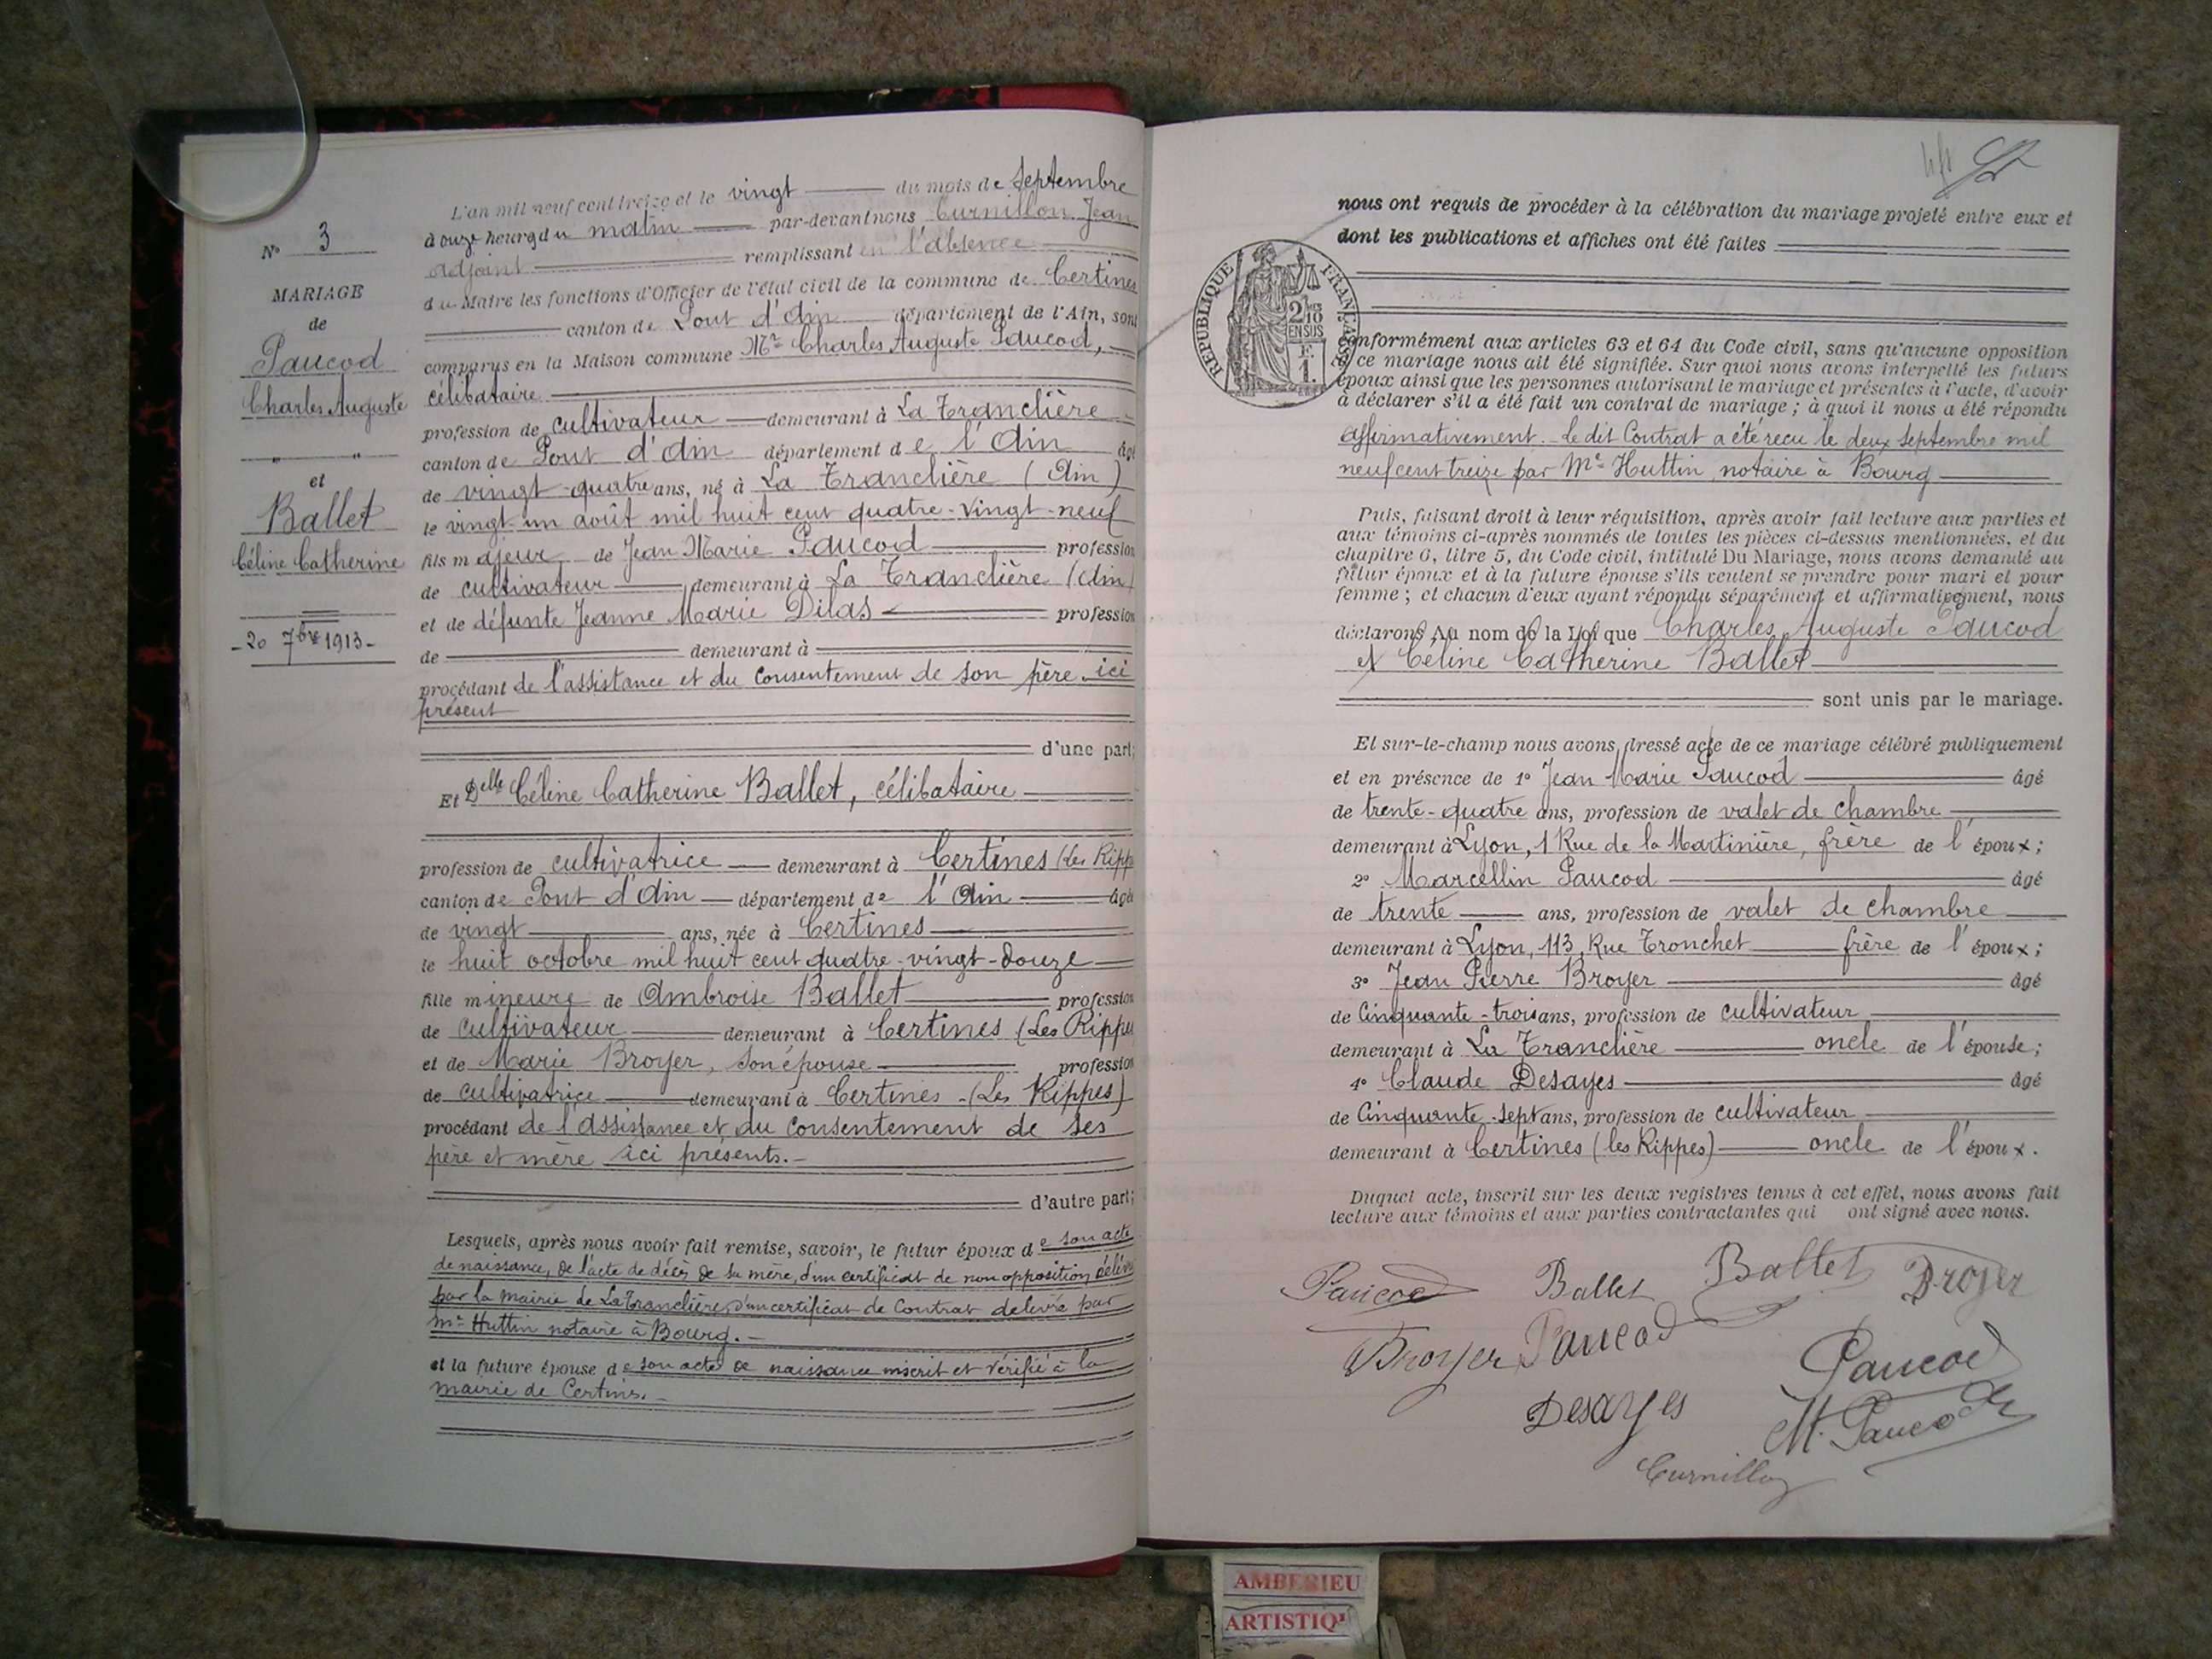 N° 3
MARIAGE
de
Paucod
Charles Auguste
et
Ballet
Céline Catherine
- 20 7bre 1913 -
L'an mil neuf cent treize et le vingt du mois de Septembre
à onze heures du matin par-devant nous Curnillon Jean
adjoint remplissant en l'absence
du Maire les fonctions d'Officier de l'état civil de la commune de Certines
canton de Pont d'Ain département de l'Ain, sont
comparus en la Maison commune Mr Charles Auguste Paucod,
célibataire
profession de cultivateur demeurant à La Tranclière
canton de Pont d'Ain département de l'Ain âgé
de vingt-quatre ans, né à La Tranclière (Ain)
le vingt-un août mil huit cent quatre-vingt-neuf
fils majeur de Jean Marie Paucod profession
de cultivateur demeurant à La Tranclière (Ain)
et de défunte Jeanne Marie Dilas profession
de demeurant à
procédant de l'assistance et du consentement de son père ici
présent
d'une part;
Et Delle Céline Catherine Ballet, célibataire
profession de cultivatrice demeurant à Certines (Les Ripp
canton de Pont d'Ain département de l'Ain âgée
de vingt ans, née à Certines
le huit octobre mil huit cent quatre-vingt-douze
fille mineure de Ambroise Ballet profession
de cultivateur demeurant à Certines (Les Rippe
et de Marie Broyer, son épouse profession
de cultivatrice demeurant à Certines - (Les Rippes)
procédant de l'assistance et du consentement de ses
père et mère ici présents. -
d'autre part;
Lesquels, après nous avoir fait remise, savoir, le futur époux de son acte
de naissance, de l'acte de décès de sa mère, d'un certificat de non opposition délivré
par la mairie de La Tranclière, d'un certificat de Contrat delivré par
Me Huttin notaire à Bourg. -
et la future épouse de son acte de naissance inscrit et vérifié à la
mairie de Certines. -
nous ont requis de procéder à la célébration du mariage projeté entre eux et
dont les publications et affiches ont été faites
RÉPUBLIQUE FRANÇAISE
2/10
EN SUS
F.
1.
conformément aux articles 63 et 64 du Code civil, sans qu'aucune opposition
à ce mariage nous ait été signifiée. Sur quoi nous avons interpellé les futurs
époux ainsi que les personnes autorisant le mariage et présentes à l'acte, d'avoir
à déclarer s'il a été fait un contrat de mariage; à quoi il nous a été répondu
affirmativement. - le dit Contrat a été reçu le deux Septembre mil
neuf cent treize par Me Huttin, notaire à Bourg
Puis, faisant droit à leur réquisition, après avoir fait lecture aux parties et
aux témoins ci-après nommés de toutes les pièces ci-dessus mentionnées, et du
chapitre 6, titre 5, du Code civil, intitulé Du Mariage, nous avons demandé au
futur époux et à la future épouse s'ils veulent se prendre pour mari et pour
femme; et chacun d'eux ayant répondu séparément et affirmativement, nous
déclarons Au nom de la Loi que Charles Auguste Paucod
et Céline Catherine Ballet
sont unis par le mariage.
Et sur-le-champ nous avons dressé acte de ce mariage célébré publiquement
et en présence de 1° Jean Marie Paucod âgé
de trente-quatre ans, profession de valet de chambre
demeurant à Lyon, 1 Rue de la Martinière, frère de l'époux;
2° Marcellin Paucod âgé
de trente ans, profession de valet de chambre
demeurant à Lyon, 113, Rue Tronchet frère de l'époux;
3° Jean Pierre Broyer âgé
de Cinquante-trois ans, profession de cultivateur
demeurant à La Tranclière oncle de l'épouse;
4° Claude Desayes âgé
de Cinquante-sept ans, profession de cultivateur
demeurant à Certines (les Rippes) oncle de l'époux.
Duquel acte, inscrit sur les deux registres tenus à cet effet, nous avons fait
lecture aux témoins et aux parties contractantes qui ont signé avec nous.
Paucod Ballet Ballet Broyer
Broyer Paucod Paucod
Desayes M. Paucod
Curnillon
AMBERIEU
ARTISTIQU